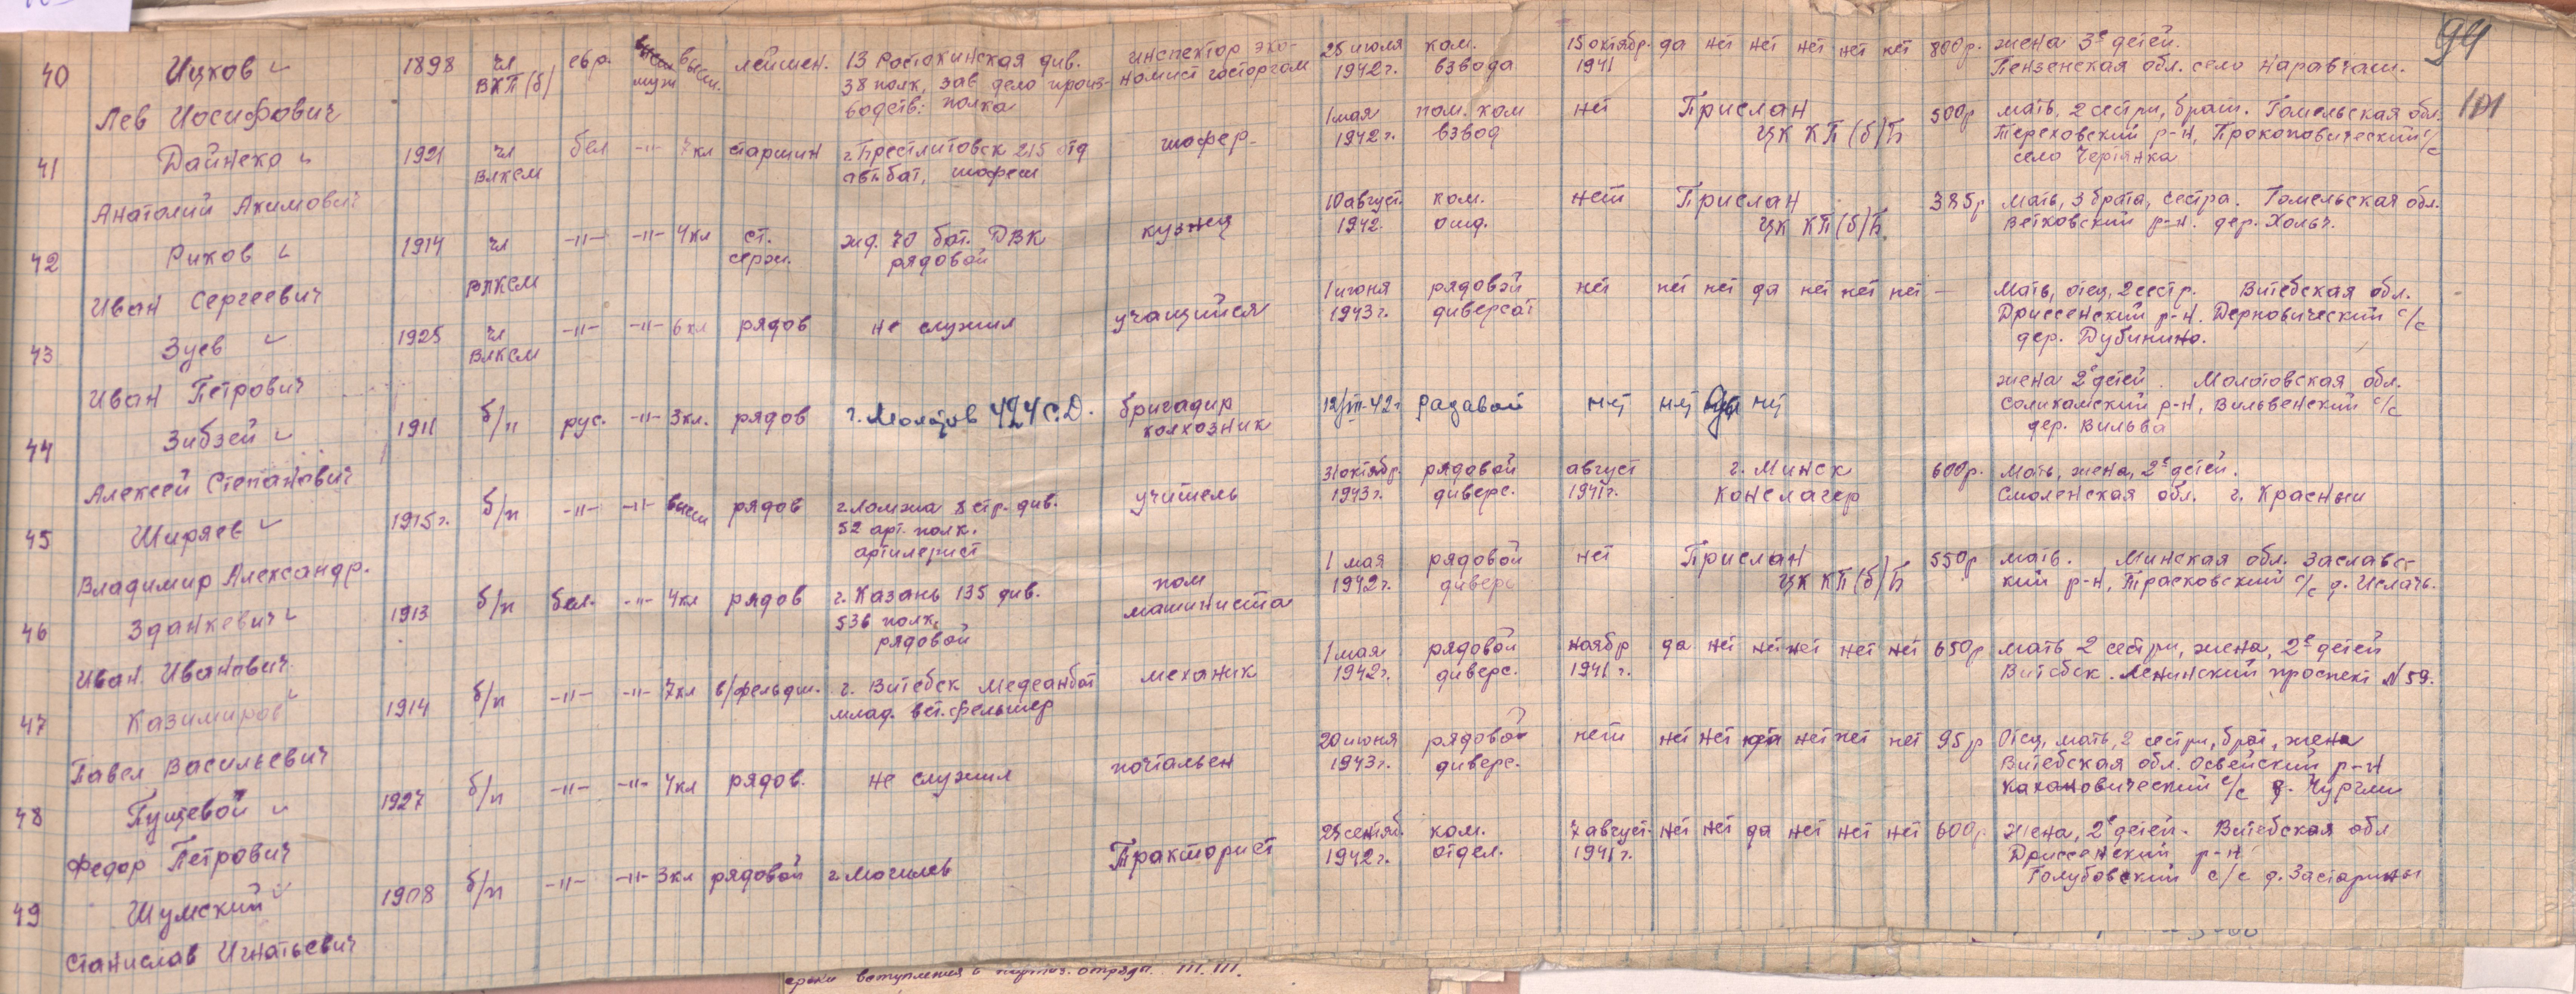 99
101
40 Ицков 1898 чл евр. муж высш. лейтен. 13 Ростокинская див. инспектор эко- 25 июля ком. 15 октябр. да нет нет нет нет нет 800р. жена 3е детей.
Лев Иосифович ВКП(б) 38 полк, зав дело произ- номист госторгом 1942г. взвода 1941 Пензенская обл. село Наравчат.
водств. полка
41 Дайнеко 1921 чл бел -"- 7кл старшин г. Брестлитовск 215 отд шофер 1 мая пом. ком нет Прислан 500р мать, 2 сестры, брат. Гомельская обл.
Анатолий Акимович ВЛКСМ автбат, шофер 1942г. взвод ЦК КП(б)Б Тереховский р-н, Прокоповический с/с
село Чертянка
42 Риков 1914 чл -"- -"- 4кл ст. жд. 70 бат. ДВК кузнец 10 август. ком. нет Прислан 385р мать, 3 брата, сестра. Гомельская обл.
Иван Сергеевич ВЛКСМ серж. рядовой 1942 отд. ЦК КП(б)Б Ветковский р-н. дер. Хольч.
43 Зуев 1925 чл -"- -"- 6кл рядов не служил учащийся 1 июня рядовой нет нет нет да нет нет нет — Мать, отец, 2 сестр. Витебская обл.
Иван Петрович ВЛКСМ 1943г. диверсат Дриссенский р-н. Дерновический с/с
дер. Дубинино.
44 Зибзей 1911 б/п рус. -"- 3кл. рядов г. Молотов 424 С.Д. бригадир 12/III-42г радавой нет нет да нет жена 2е детей. Молотовская обл.
Алексей Степанович колхозник Соликамский р-н, Вильвенский с/с
дер. Вильва
45 Ширяев 1915г. б/п -"- -"- высш рядов г. Ломжа 8 стр. див. учитель 31 октябр. рядовой август г. Минск 600р. Мать, жена, 2е детей.
Владимир Александр. 52 арт. полк. 1943г. диверс. 1941г. концлагер Смоленская обл. г. Красный
артилерист
46 Зданкевич 1913 б/п бел. -"- 4кл рядов г. Казань 135 див. пом 1 мая рядовой нет Прислан 550р мать. Минская обл. Заславс-
Иван Иванович 536 полк. машиниста 1942г. диверс ЦК КП(б)Б кий р-н, Трасковский с/с д.
рядовой
47 Казимиров 1914 б/п -"- -"- 7кл в/фельдш. г. Витебск Медсанбат механик 1 мая рядовой ноябр да нет нет нет нет нет 650р мать 2 сестры, жена, 2е детей
Павел Васильевич млад. вет. фельшер 1942г. диверс. 1941г. Витебск. Ленинский проспект N 59.
48 Пущевой 1927 б/п -"- -"- 4кл рядов. не служил почтальен 20 июня рядовой нет нет нет да нет нет нет 95р Отец, мать, 2 сестры, брат, жена
Федор Петрович 1943г. диверс. Витебская обл. Освейский р-н
Кахановический с/с д. Чургли
49 Шумский 1908 б/п -"- -"- 3кл рядовой г. Могилев Тракторист 25 сентяб. ком. 7 август. нет нет да нет нет нет 600р. Жена, 2е детей. Витебская обл
Станислав Игнатьевич 1942г. отдел. 1941г. Дриссенский р-н
Голубовский с/с д. Застарины
сроки вступления в партиз. отряда.